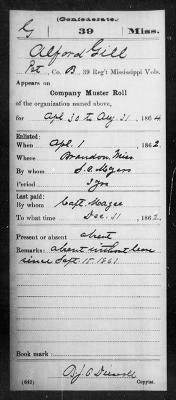 (Confederate.)
G 39 Miss.
Alford Gill
Pvt, Co. B, 39 Reg't Mississippi Vols.
Appears on
Company Muster Roll
of the organization named above,
for Apl 30 to Aug 31, 1864
Enlisted:
When Apl. 1, 1862
Where Brandon, Miss
By whom S. C. Myers
Period 3 yrs
Last paid:
By whom Capt. Magee
To what time Dec. 31, 1862.
Present or absent absent
Remarks: absent without leave
since Sept. 15. 1863.
Book mark:
(642) Copyist.